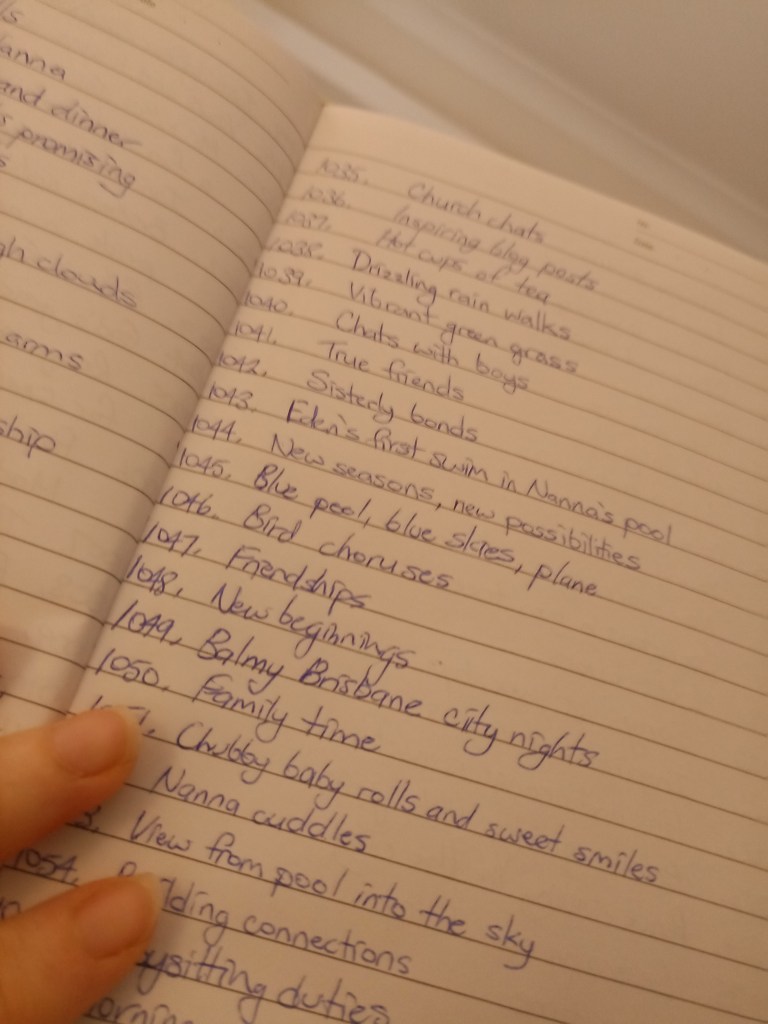 anna
and dinner
s promising
gh clouds
arms
ship
1035. Church chats
1036. Inspiring blog posts
1037. Hot cups of tea
1038. Drizzling rain walks
1039. Vibrant green grass
1040. Chats with boys
1041. True friends
1042. Sisterly bonds
1043. Eden's first swim in Nanna's pool
1044. New seasons, new possibilities
1045. Blue pool, blue skies, plane
1046. Bird choruses
1047. Friendships
1048. New beginnings
1049. Balmy Brisbane city nights
1050. Family time
Chubby baby rolls and sweet smiles
Nanna cuddles
3. View from pool into the sky
1054. lding connections
ysitting duties